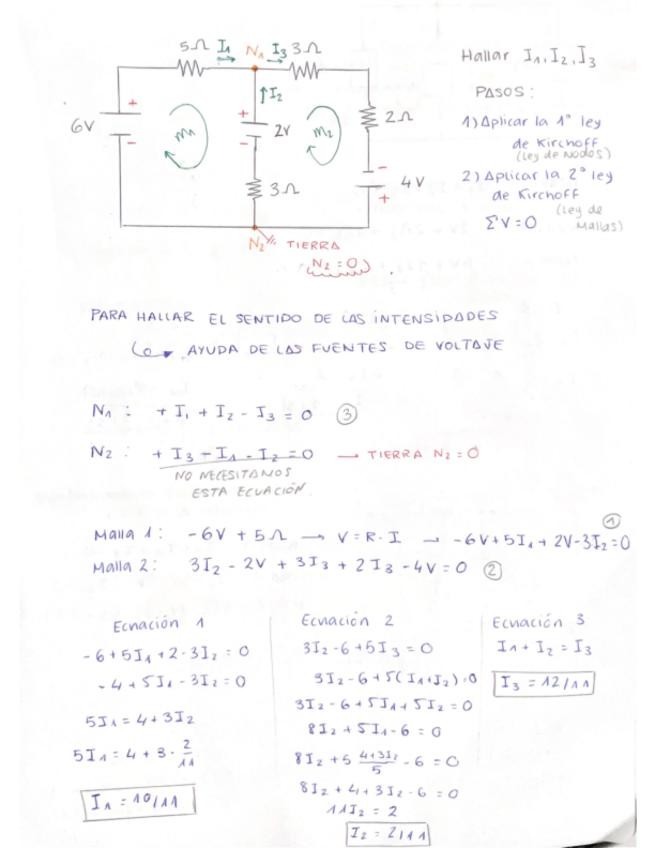 5Ω I₁ N₁ I₃ 3Ω
+ 6V -
m₁
↑I₂
+ 2V -
m₂
2Ω
- 4V +
3Ω
N₂ TIERRA
N₂ = 0
Hallar I₁, I₂, I₃
PASOS:
1) Aplicar la 1° ley
de Kirchoff
(Ley de Nodos)
2) Aplicar la 2° ley
de Kirchoff
(Ley de
ΣV = 0 Mallas)
PARA HALLAR EL SENTIDO DE LAS INTENSIDADES
AYUDA DE LAS FUENTES DE VOLTAJE
N₁ : + I₁ + I₂ - I₃ = 0 ③
N₂ : + I₃ - I₁ - I₂ = 0 → TIERRA N₂ = 0
NO NECESITAMOS
ESTA ECUACIÓN.
Malla 1: -6V + 5Ω → V = R · I → -6V + 5I₁ + 2V - 3I₂ = 0 ①
Malla 2: 3I₂ - 2V + 3I₃ + 2I₃ - 4V = 0 ②
Ecuación 1
-6 + 5I₁ + 2 - 3I₂ = 0
-4 + 5I₁ - 3I₂ = 0
5I₁ = 4 + 3I₂
5I₁ = 4 + 3 · 2/11
I₁ = 10/11
Ecuación 2
3I₂ - 6 + 5I₃ = 0
3I₂ - 6 + 5(I₁ + I₂) = 0
3I₂ - 6 + 5I₁ + 5I₂ = 0
8I₂ + 5I₁ - 6 = 0
8I₂ + 5 (4+3I₂)/5 - 6 = 0
8I₂ + 4 + 3I₂ - 6 = 0
11I₂ = 2
I₂ = 2/11
Ecuación 3
I₁ + I₂ = I₃
I₃ = 12/11